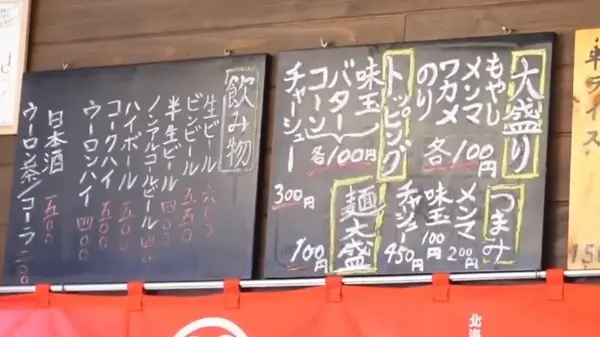 大盛り
もやし
メンマ
ワカメ
のり
各100円
つまみ
メンマ 200円
味玉 100円
チャシュー 450円
トッピング
味玉
バター
コーン
各100円
チャーシュー 300円
麺大盛
100円
飲み物
生ビール
ビンビール 五五〇
半生ビール 四〇〇
ノンアルコールビール
ハイボール 五〇〇
コークハイ 五〇〇
ウーロンハイ 四〇〇
日本酒 五〇〇
ウーロン茶/コーラ 二〇〇
北海